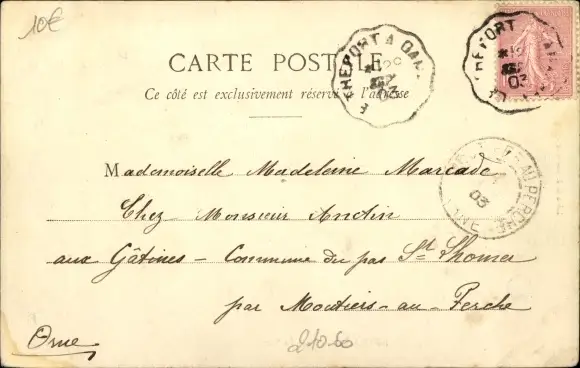 10€
CARTE POSTALE
Ce côté est exclusivement réservé à l'adresse
TRÉPORT A
03
TRÉPORT
03
Mademoiselle Madeleine Marcade
Chez Monsieur Andin
03
AU PERCHE
aux Gâtines - Commune du pas St Thomer
par Moutiers-au-Perche
Orne
21060